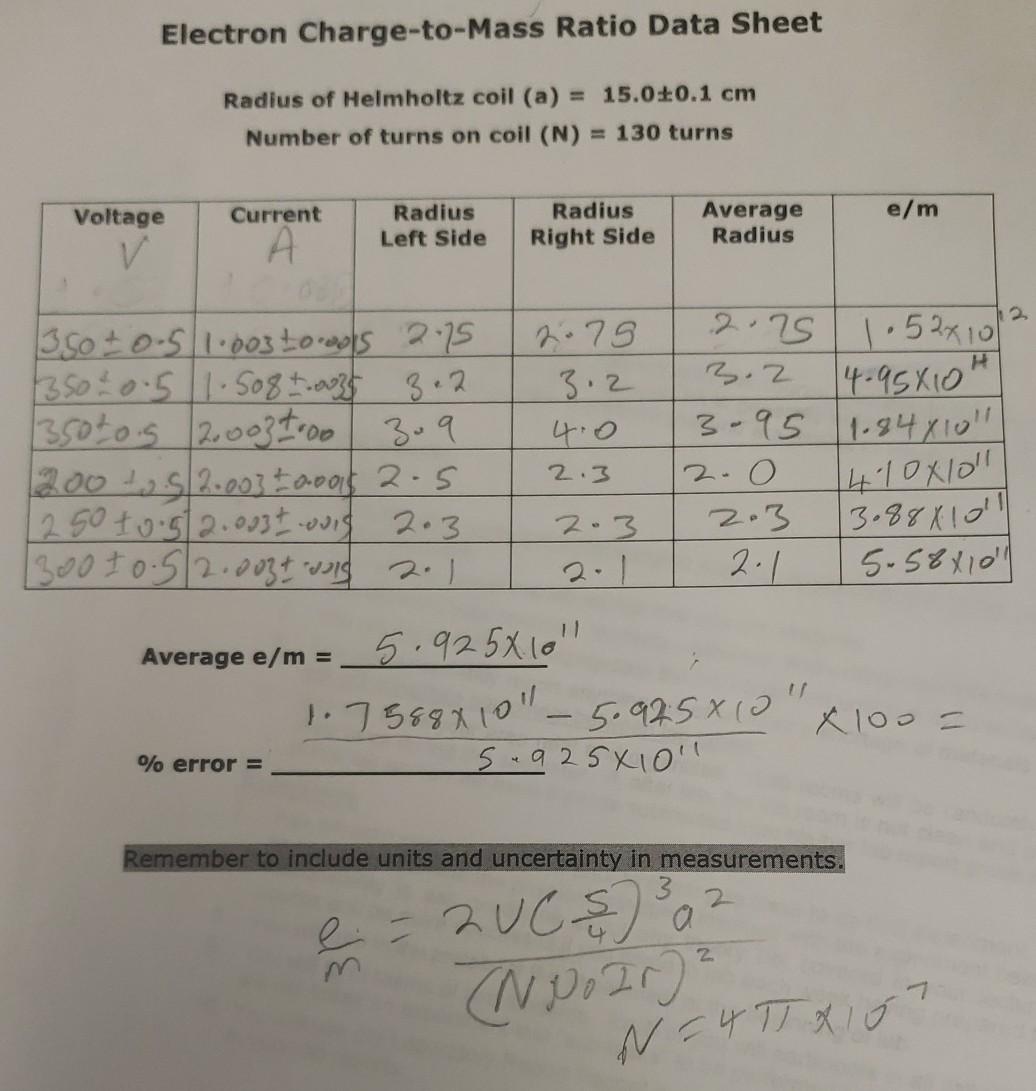 Electron Charge-to-Mass Ratio Data Sheet
Radius of Helmholtz coil (a) = 15.0±0.1 cm
Number of turns on coil (N) = 130 turns
Voltage V | Current A | Radius Left Side | Radius Right Side | Average Radius | e/m
350 ± 0.5 | 1.003 ± 0.0015 | 2.75 | 2.75 | 2.75 | 1.52x10¹²
350 ± 0.5 | 1.508 ± .0035 | 3.2 | 3.2 | 3.2 | 4.95x10¹¹
350 ± 0.5 | 2.003 ± .00 | 3.9 | 4.0 | 3.95 | 1.84x10¹¹
200 ± 0.5 | 2.003 ± 0.0015 | 2.5 | 2.3 | 2.0 | 4.10x10¹¹
250 ± 0.5 | 2.003 ± .0015 | 2.3 | 2.3 | 2.3 | 3.88x10¹¹
300 ± 0.5 | 2.003 ± .0015 | 2.1 | 2.1 | 2.1 | 5.58x10¹¹
Average e/m = 5.925x10¹¹
1.7588x10¹¹ - 5.925x10¹¹ x100 =
% error = 5.925x10¹¹
Remember to include units and uncertainty in measurements.
e/m = 2V(5/4)³a² / (Nμ₀Ir)²
N = 4π x10⁻⁷